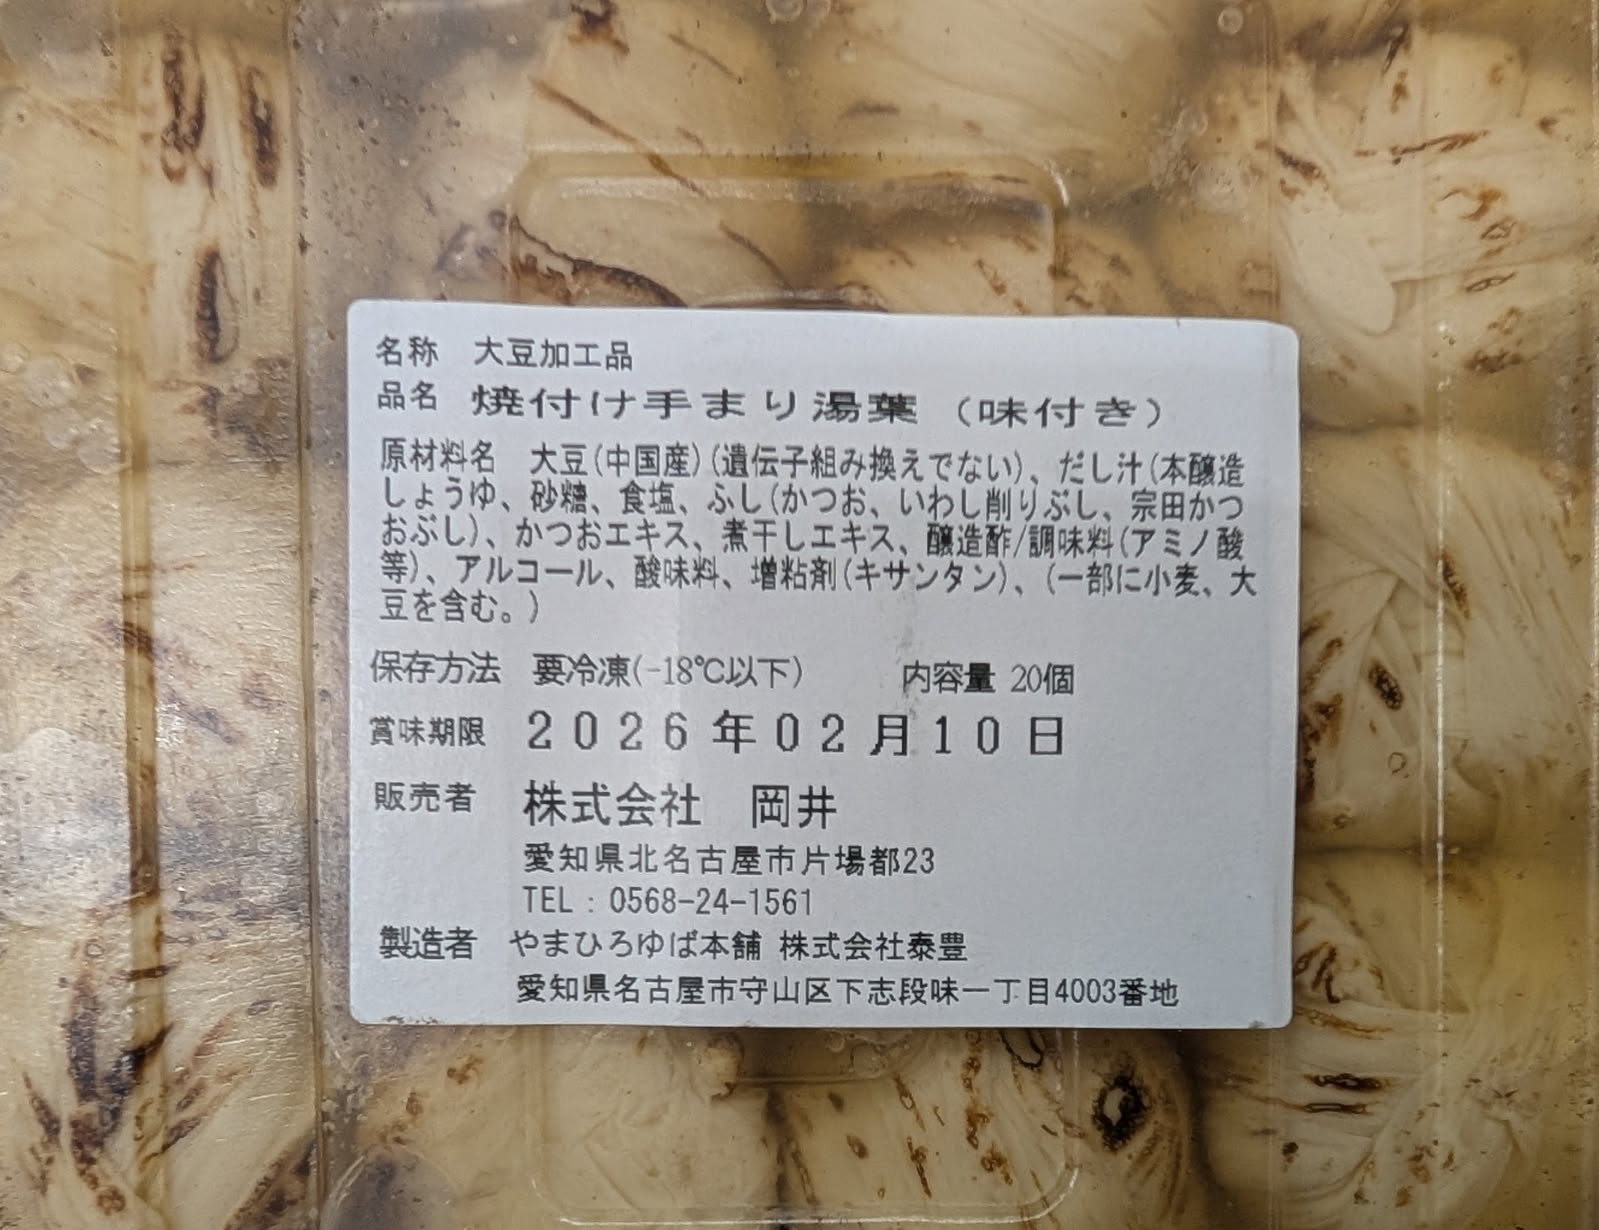 名称 大豆加工品
品名 焼付け手まり湯葉（味付き）
原材料名 大豆(中国産)(遺伝子組み換えでない)、だし汁(本醸造
しょうゆ、砂糖、食塩、ふし(かつお、いわし削りぶし、宗田かつ
おぶし)、かつおエキス、煮干しエキス、醸造酢/調味料(アミノ酸
等)、アルコール、酸味料、増粘剤(キサンタン)、(一部に小麦、大
豆を含む。)
保存方法 要冷凍(-18℃以下) 内容量 20個
賞味期限 2026年02月10日
販売者 株式会社 岡井
愛知県北名古屋市片場都23
TEL：0568-24-1561
製造者 やまひろゆば本舗 株式会社泰豊
愛知県名古屋市守山区下志段味一丁目4003番地